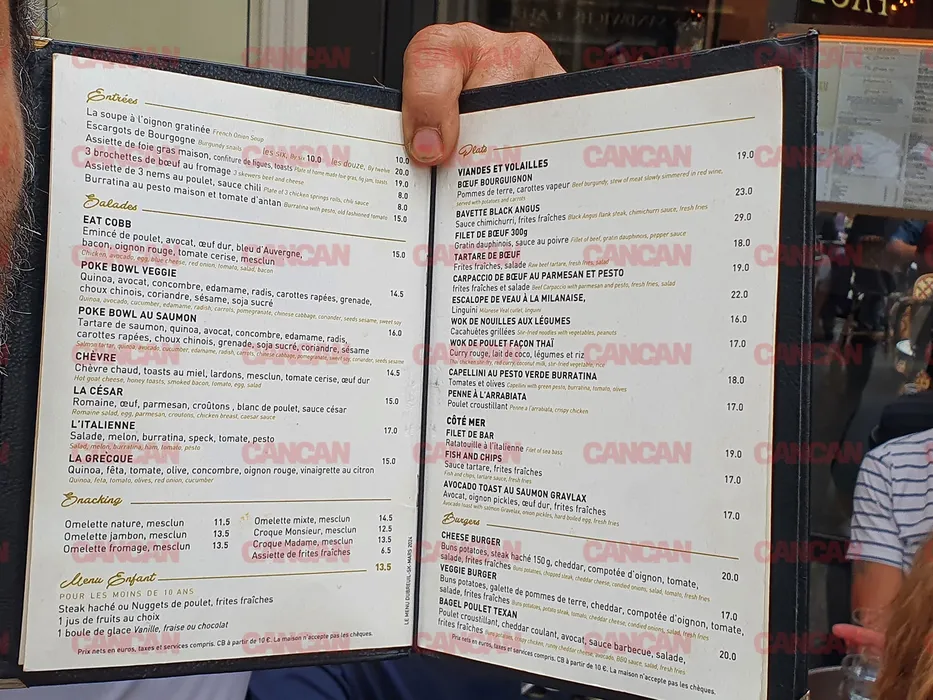 Entrées
La soupe à l'oignon gratinée French Onion Soup 10.0
Escargots de Bourgogne Burgundy snails les six, By six 10.0 les douze, By twelve 20.0
Assiette de foie gras maison, confiture de figues, toasts Plate of home made foie gras, fig jam, toasts 19.0
3 brochettes de bœuf au fromage 3 skewers beef and cheese 8.0
Assiette de 3 nems au poulet, sauce chili Plate of 3 chicken springs rolls, chili sauce 8.0
Burratina au pesto maison et tomate d'antan Burratina with pesto, old fashioned tomato 15.0
Salades
EAT COBB
Emincé de poulet, avocat, œuf dur, bleu d'Auvergne,
bacon, oignon rouge, tomate cerise, mesclun 15.0
Chicken, avocado, egg, blue cheese, red onion, tomato, salad, bacon
POKE BOWL VEGGIE
Quinoa, avocat, concombre, edamame, radis, carottes rapées, grenade,
choux chinois, coriandre, sésame, soja sucré 14.5
Quinoa, avocado, cucumber, edamame, radish, carrots, pomegranate, chinese cabbage, coriander, seeds sesame, sweet soy
POKE BOWL AU SAUMON
Tartare de saumon, quinoa, avocat, concombre, edamame, radis, 16.0
carottes rapées, choux chinois, grenade, soja sucré, coriandre, sésame
Salmon tartar, quinoa, avocado, cucumber, edamame, radish, carrots, chinese cabbage, pomegranate, sweet soy, coriander, seeds sesame
CHÈVRE
Chèvre chaud, toasts au miel, lardons, mesclun, tomate cerise, œuf dur 14.5
Hot goat cheese, honey toasts, smoked bacon, tomato, egg, salad
LA CÉSAR
Romaine, œuf, parmesan, croûtons , blanc de poulet, sauce césar 15.0
Romaine salad, egg, parmesan, croutons, chicken breast, caesar sauce
L'ITALIENNE
Salade, melon, burratina, speck, tomate, pesto 17.0
Salad, melon, burratina, ham, tomato, pesto
LA GRECQUE
Quinoa, fêta, tomate, olive, concombre, oignon rouge, vinaigrette au citron 15.0
Quinoa, feta, tomato, olives, red onion, cucumber
Snacking
Omelette nature, mesclun 11.5
Omelette jambon, mesclun 13.5
Omelette fromage, mesclun 13.5
Omelette mixte, mesclun 14.5
Croque Monsieur, mesclun 12.5
Croque Madame, mesclun 13.5
Assiette de frites fraîches 6.5
Menu Enfant 13.5
POUR LES MOINS DE 10 ANS
Steak haché ou Nuggets de poulet, frites fraîches
1 jus de fruits au choix
1 boule de glace Vanille, fraise ou chocolat
Prix nets en euros, taxes et services compris. CB à partir de 10 €. La maison n'accepte pas les chèques.
LE MENU DUBREUIL-GK-MARS 2024
Plats
VIANDES ET VOLAILLES
BŒUF BOURGUIGNON 19.0
Pommes de terre, carottes vapeur Beef burgundy, stew of meat slowly simmered in red wine,
served with potatoes and carrots
BAVETTE BLACK ANGUS 23.0
Sauce chimichurri, frites fraîches Black Angus flank steak, chimichurri sauce, fresh fries
FILET DE BŒUF 300g 29.0
Gratin dauphinois, sauce au poivre Fillet of beef, gratin dauphinois, pepper sauce
TARTARE DE BŒUF 18.0
Frites fraîches, salade Raw beef tartare, fresh fries, salad
CARPACCIO DE BŒUF AU PARMESAN ET PESTO 19.0
frites fraîches et salade Beef Carpaccio with parmesan and pesto, fresh fries, salad
ESCALOPE DE VEAU À LA MILANAISE, 22.0
Linguini Milanese Veal cutlet, linguini
WOK DE NOUILLES AUX LÉGUMES 16.0
Cacahuètes grillées Stir-fried noodles with vegetables, peanuts
WOK DE POULET FAÇON THAÏ 17.0
Curry rouge, lait de coco, légumes et riz
Thai chicken stir fry, red curry, coconut milk, stir-fried vegetables, rice
CAPELLINI AU PESTO VERDE BURRATINA 18.0
Tomates et olives Capellini with green pesto, burratina, tomato, olives
PENNE À L'ARRABIATA 17.0
Poulet croustillant Penne a l'arrabiata, crispy chicken
CÔTÉ MER
FILET DE BAR 19.0
Ratatouille à l'italienne Filet of sea bass
FISH AND CHIPS 17.0
Sauce tartare, frites fraîches
Fish and chips, tartare sauce, fresh fries
AVOCADO TOAST AU SAUMON GRAVLAX 17.0
Avocat, oignon pickles, œuf dur, frites fraîches
Avocado toast with salmon Gravalax, onion pickles, hard boiled egg, fresh fries
Burgers
CHEESE BURGER
Buns potatoes, steak haché 150 g, cheddar, compotée d'oignon, tomate, 20.0
salade, frites fraîches Buns potatoes, chopped steak, cheddar cheese, candied onions, salad, tomato, fresh fries
VEGGIE BURGER
Buns potatoes, galette de pommes de terre, cheddar, compotée d'oignon, tomate, 17.0
salade, frites fraîches Buns potatoes, potato steak, tomato, cheddar cheese, candied onions, salad, fresh fries
BAGEL POULET TEXAN
Poulet croustillant, cheddar coulant, avocat, sauce barbecue, salade, 20.0
frites fraîches Bagel with crispy chicken, runny cheddar cheese, avocado, BBQ sauce, salad, fresh fries
Prix nets en euros, taxes et services compris. CB à partir de 10 €. La maison n'accepte pas les chèques.
CANCAN